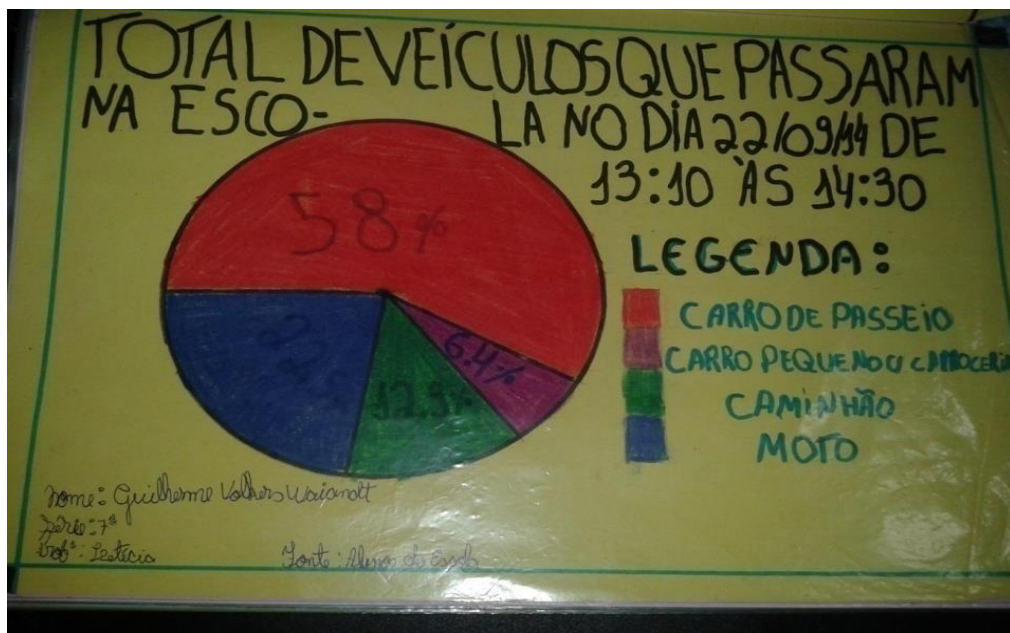 TOTAL DE VEÍCULOS QUE PASSARAM
NA ESCO- LA NO DIA 22/09/14 DE
13:10 ÀS 14:30
58%
22.5
12.9%
6.4%
LEGENDA:
CARRO DE PASSEIO
CARRO PEQUENO C/ CARROCERIA
CAMINHÃO
MOTO
Nome: Guilherme
Série: 7ª
Profª: Letícia
Fonte: Alunos da Escola